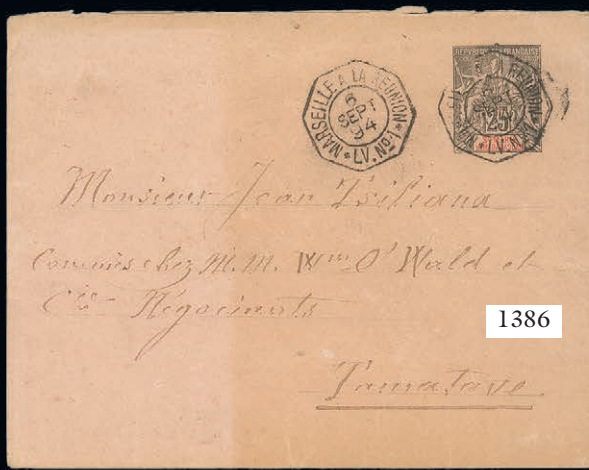 MARSEILLE A LA REUNION * L.V. No 1 *
6
SEPT
94
REPUBLIQUE FRANÇAISE
25
Monsieur Jean Tsiliana
Commis chez M.M. Wm O'Wald et
Cie Négociants
1386
Tamatave